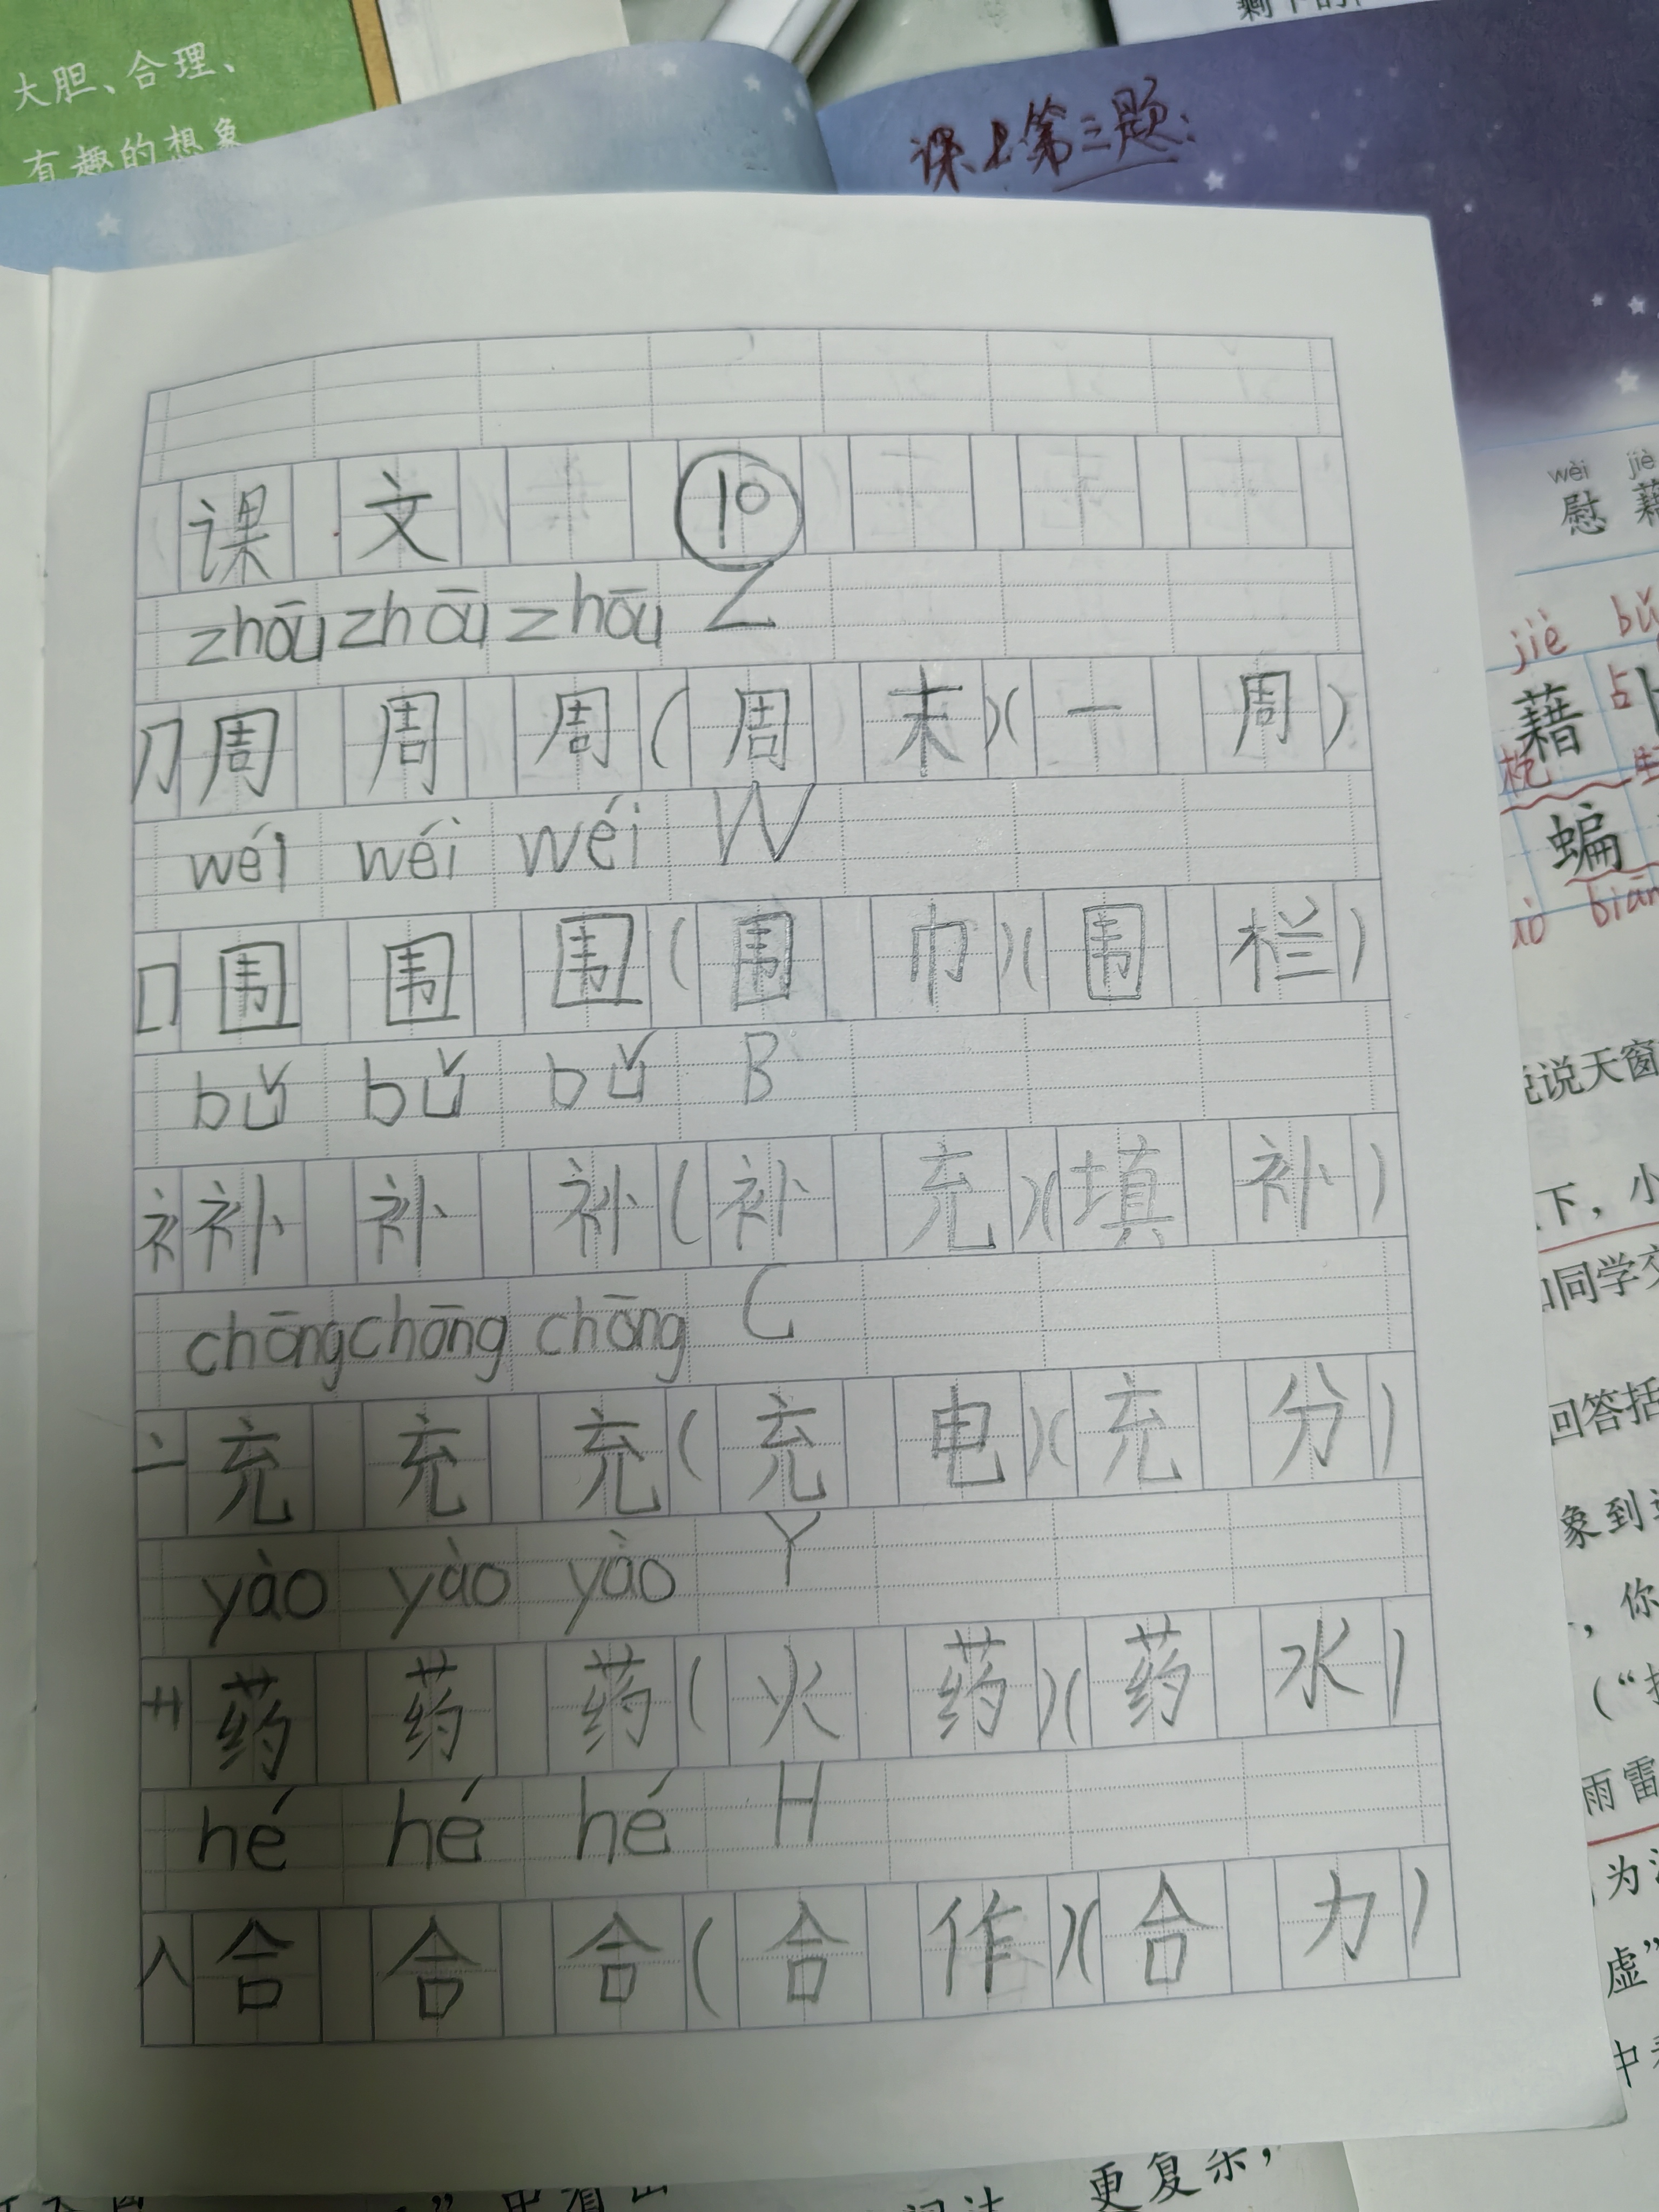 大胆、合理、
有趣的想象
课上第三题:
课 文 10
zhōu zhōu zhōu Z
⺆ 周 周 周 ( 周 末 ) ( 一 周 )
wéi wéi wéi W
囗 围 围 围 ( 围 巾 ) ( 围 栏 )
bǔ bǔ bǔ B
衤 补 补 补 ( 补 充 ) ( 填 补 )
chōng chōng chōng C
亠 充 充 充 ( 充 电 ) ( 充 分 )
yào yào yào Y
艹 药 药 药 ( 火 药 ) ( 药 水 )
hé hé hé H
人 合 合 合 ( 合 作 ) ( 合 力 )
wèi jiè
慰 藉
jiè bǔ
藉
蝙
biān
说说天窗
下，小
同学交
回答括
象到
，你
(“
雨雷
为
虚”
中
更复杂，